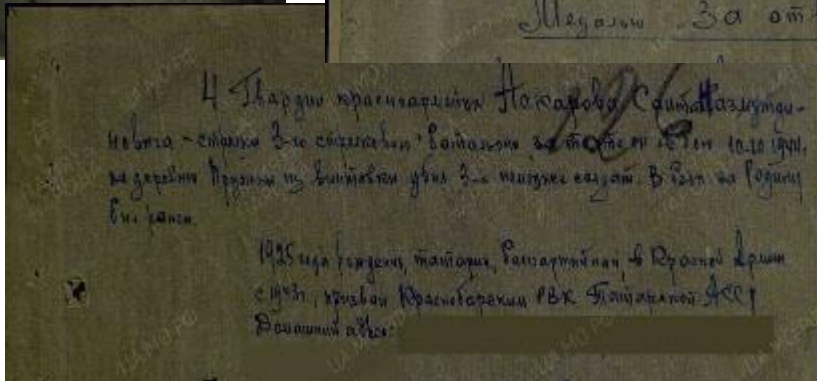 Медалью "За от
4 Гвардии красноармейца Накарова
новича - стрелка 3-го стрелкового батальона за то что он в бою 10.10.1944г.
за деревню из винтовки убил 3-х немецких солдат. В боях за Родину
был ранен.
1925 года рождения, татарин, беспартийный, в Красной Армии
с 1943г., призван Красноборским РВК Татарской АССР
Домашний адрес: